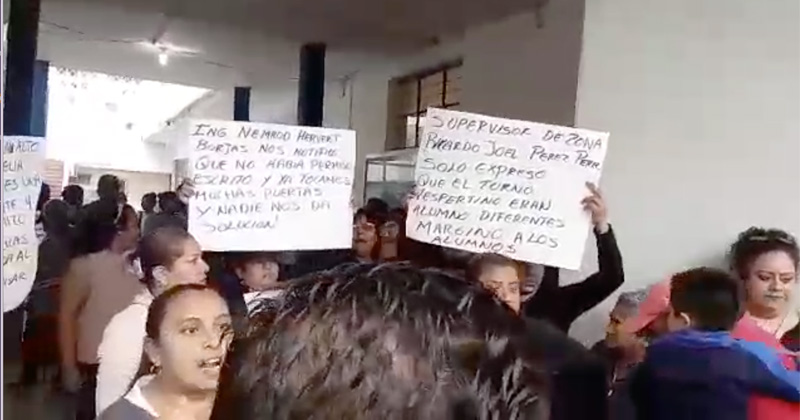 ALTO
Y
AL
ING NEMROD HERVERT
BORJAS NOS NOTIFICO
QUE NO HABIA PERMISO
ESCRITO Y YA TOCAMOS
MUCHAS PUERTAS
Y NADIE NOS DA
SOLUCION!
SUPERVISOR DE ZONA
RICARDO JOEL PEREZ
SOLO EXPRESO
QUE EL TURNO
VESPERTINO ERAN
ALUMNO DIFERENTES
MARGINO A LOS
ALUMNOS